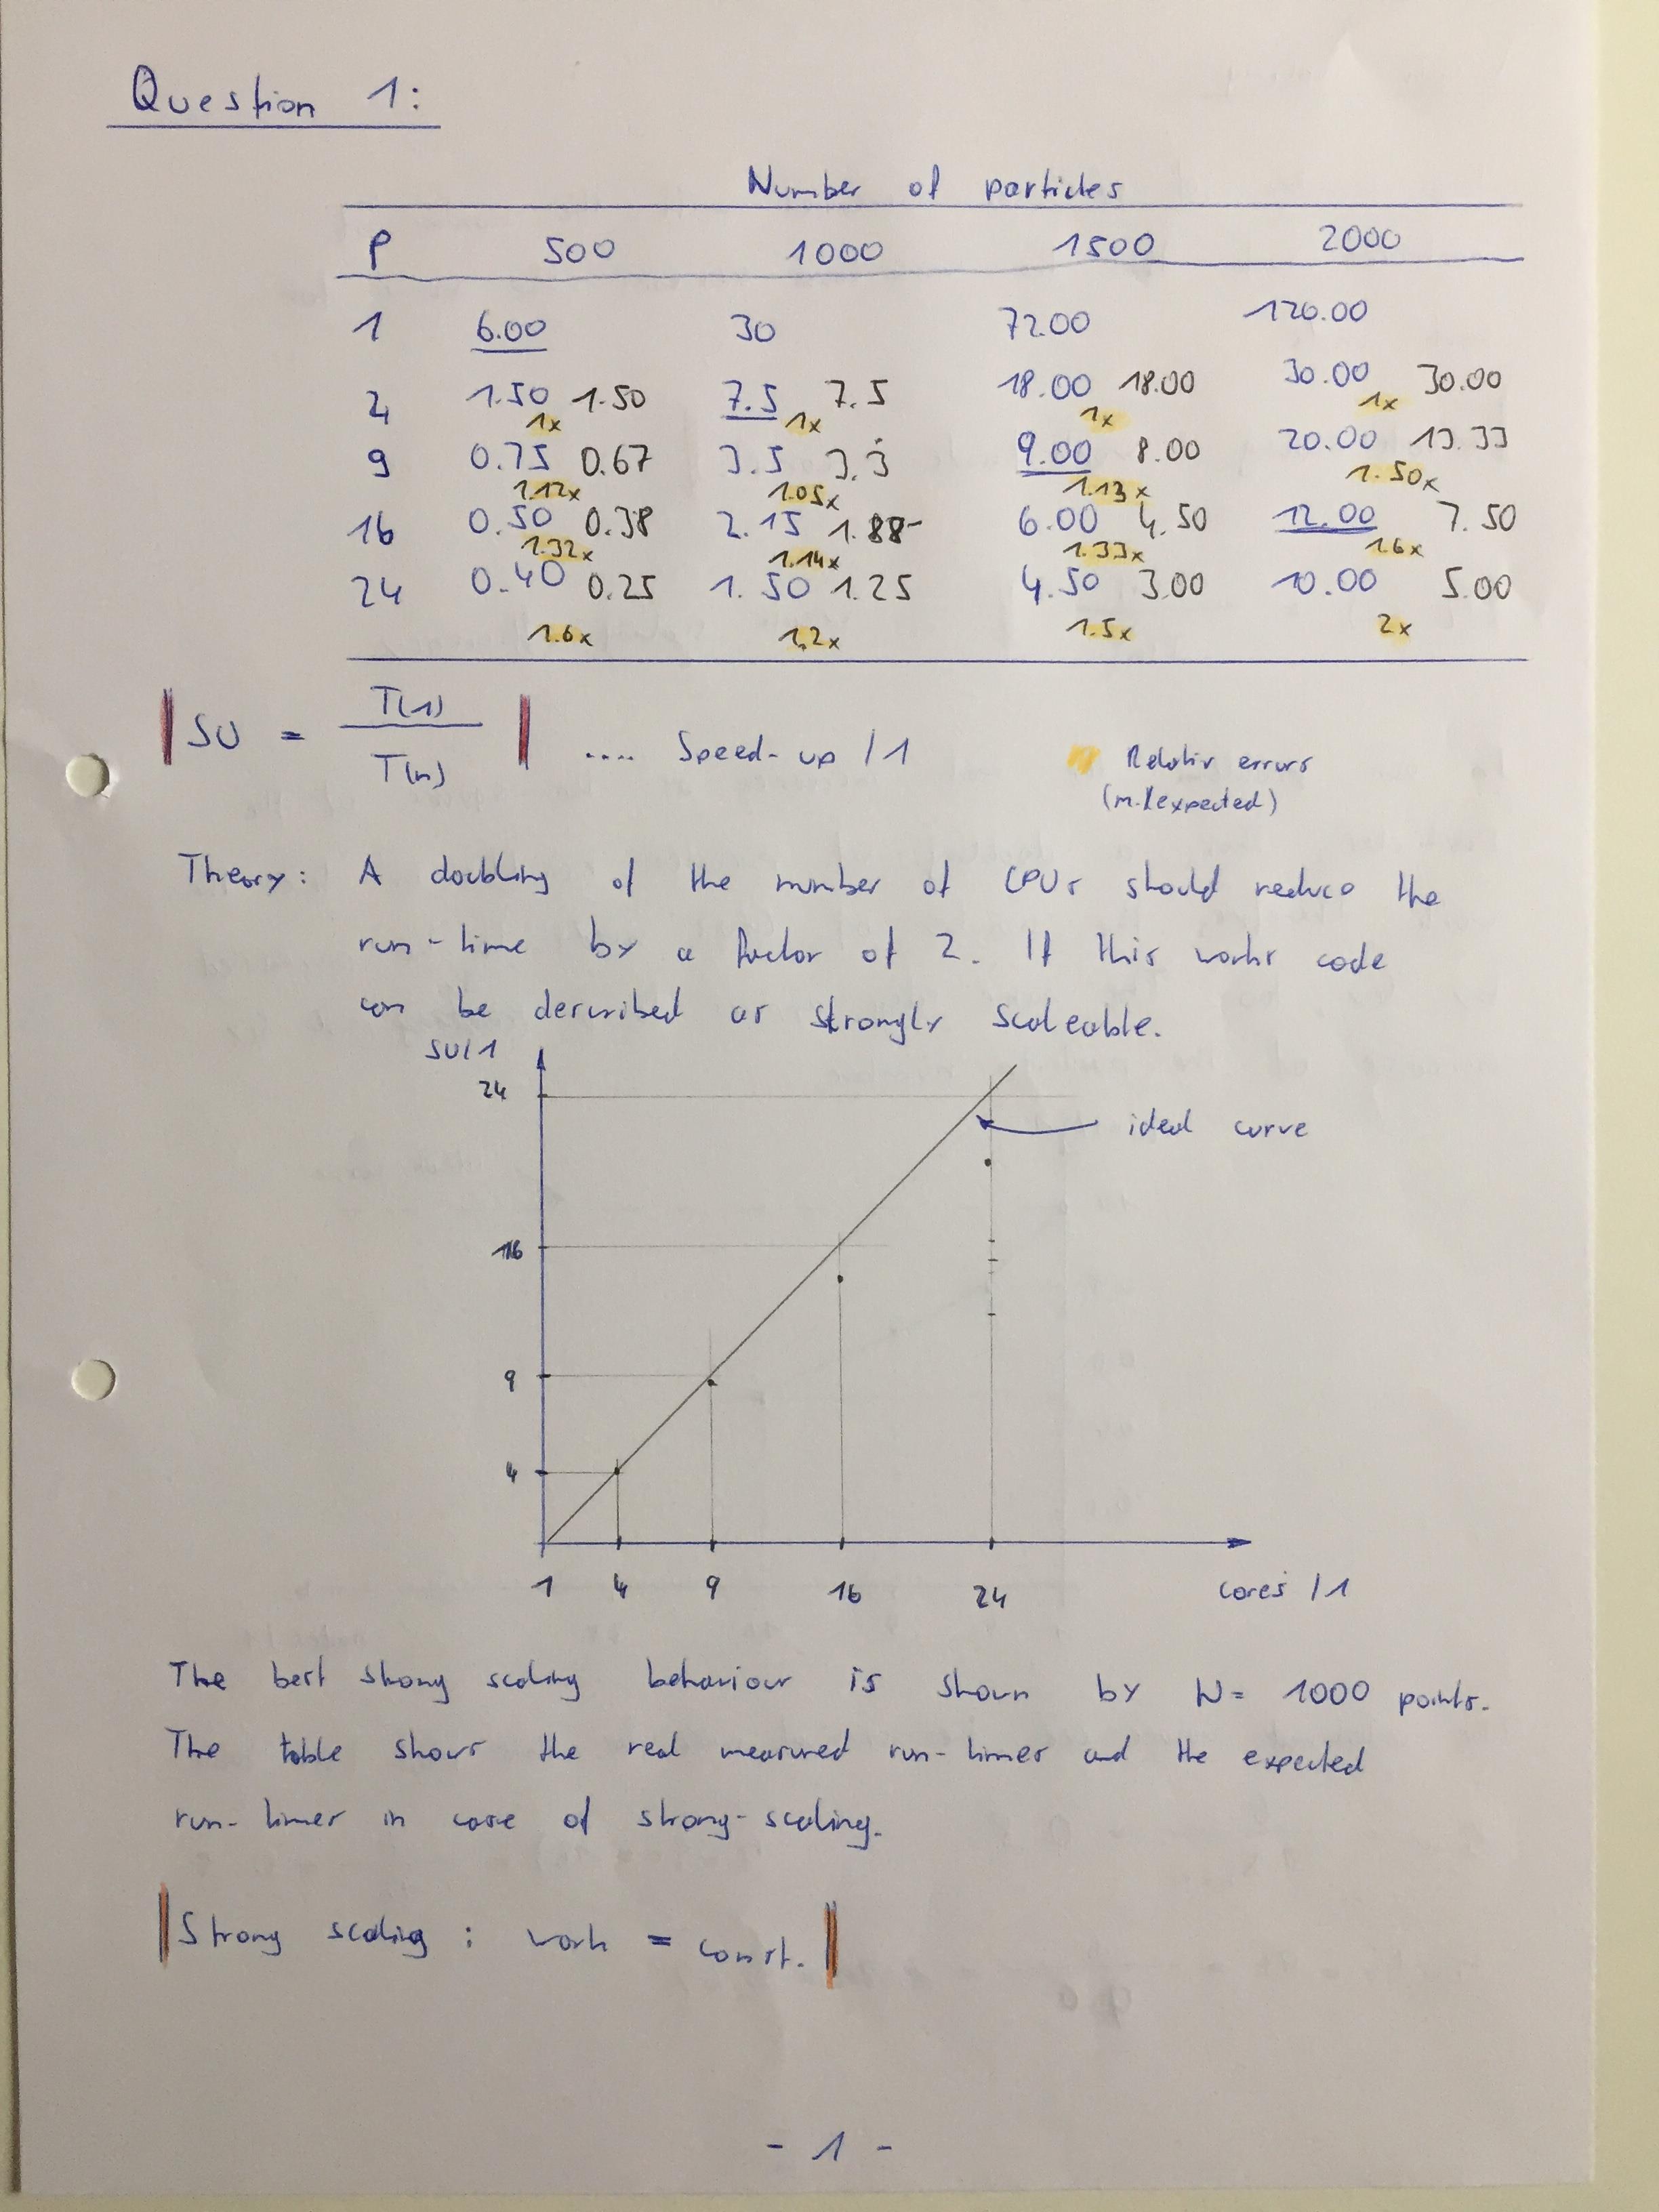 Question 1:
Number of particles
P 500 1000 1500 2000
1 6.00 30 72.00 120.00
4 1.50 1.50 7.5 7.5 18.00 18.00 30.00 30.00
1x 1x 1x 1x
9 0.75 0.67 3.5 3.3 9.00 8.00 20.00 13.33
1.12x 1.05x 1.13x 1.50x
16 0.50 0.38 2.15 1.88 6.00 4.50 12.00 7.50
1.32x 1.14x 1.33x 1.6x
24 0.40 0.25 1.50 1.25 4.50 3.00 10.00 5.00
1.6x 1.2x 1.5x 2x
SU = T(1) / T(n) .... Speed-up /1
Relativ errors
(m./expected)
Theory: A doubling of the number of CPUs should reduce the
run-time by a factor of 2. If this works code
can be described as strongly scaleable.
SU/1
24
16
9
4
1 4 9 16 24 cores /1
ideal curve
The best strong scaling behaviour is shown by N= 1000 points.
The table shows the real measured run-times and the expected
run-times in case of strong-scaling.
Strong scaling : work = const.
- 1 -